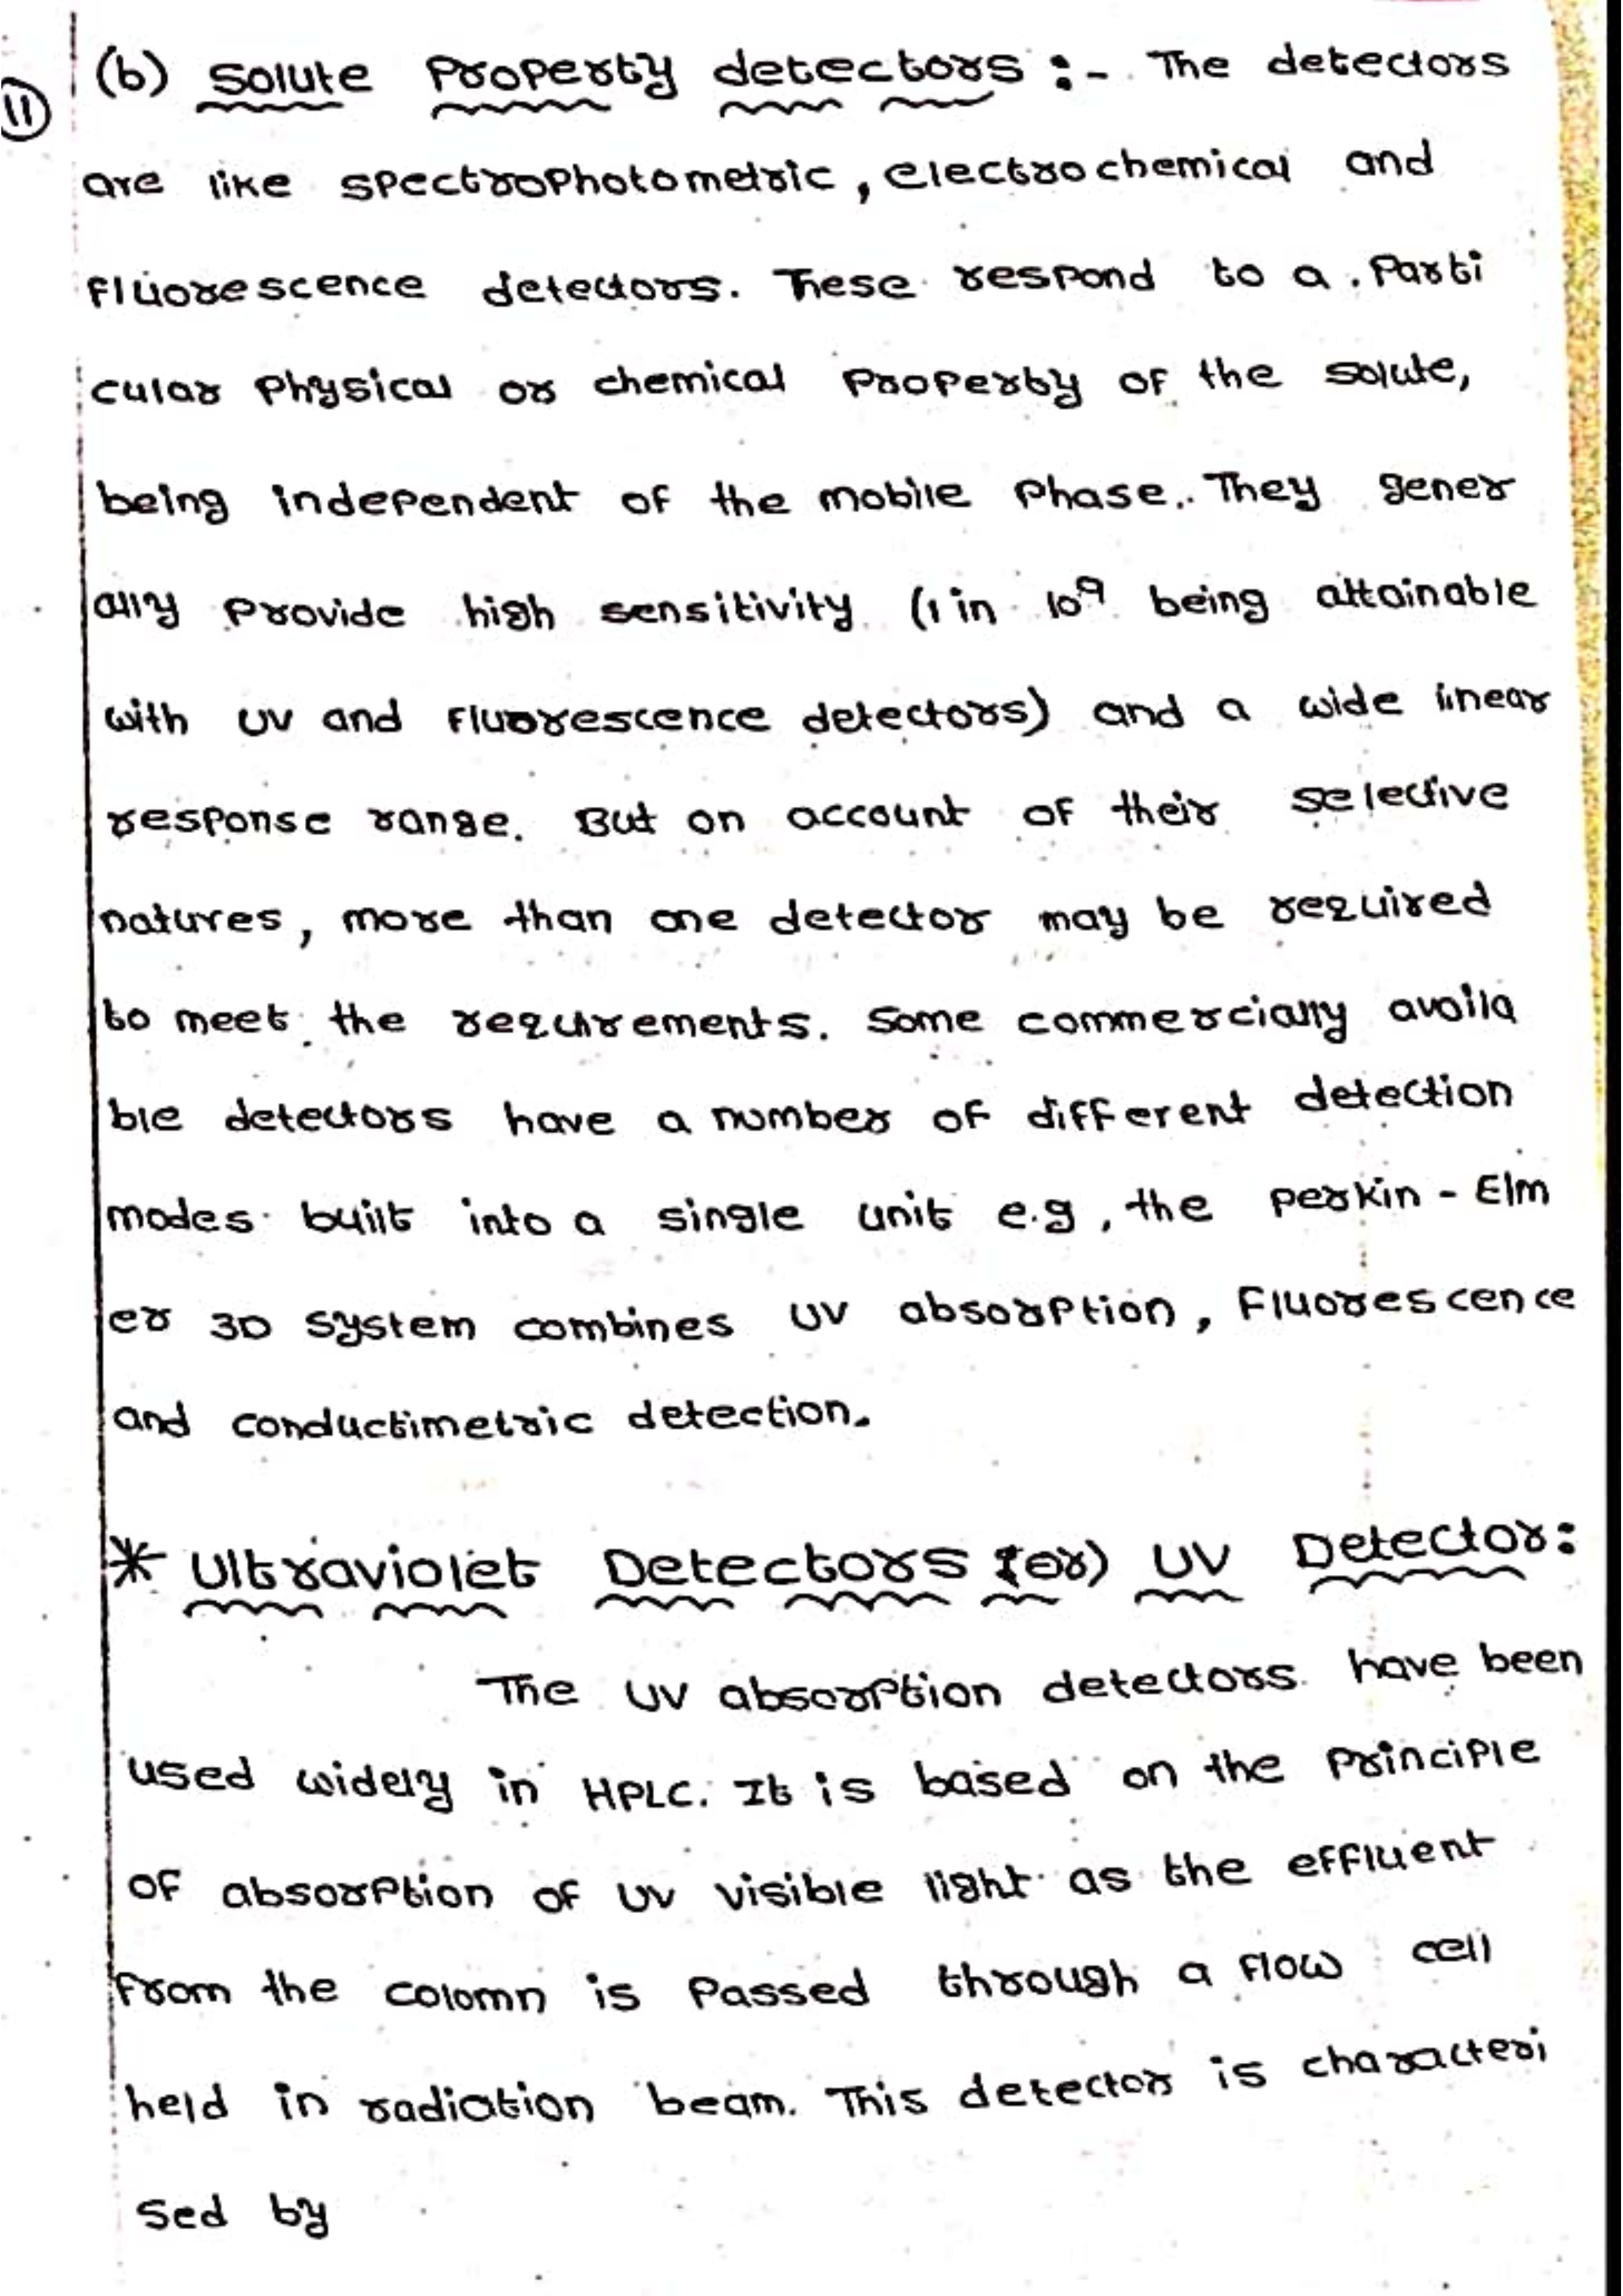 (b) Solute Property detectors :- The detectors
11
are like spectrophotometric, electrochemical and
fluorescence detectors. These respond to a Parti
cular Physical or chemical Property of the solute,
being independent of the mobile Phase. They gener
ally Provide high sensitivity (1 in 10⁹ being attainable
with UV and fluorescence detectors) and a wide linear
response range. But on account of their selective
natures, more than one detector may be required
to meet the requirements. Some commercially availa
ble detectors have a number of different detection
modes built into a single unit e.g, the perkin - Elm
er 3D system combines UV absorption, Fluorescence
and conductimetric detection.
* Ultraviolet Detectors (or) UV Detector:
The UV absorption detectors have been
used widely in HPLC. It is based on the Principle
of absorption of UV visible light as the effluent
from the colomn is Passed through a flow cell
held in radiation beam. This detector is characteri
sed by